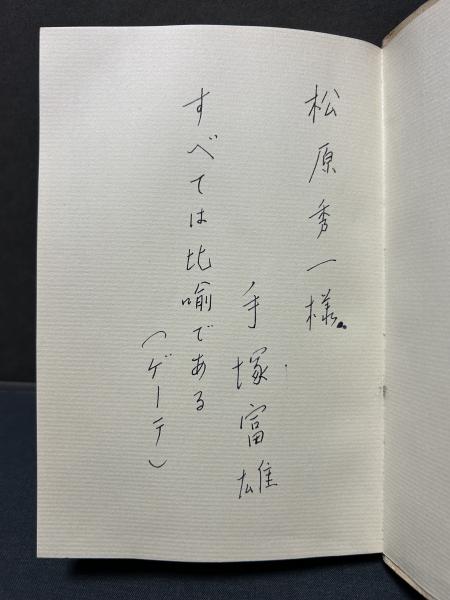 松原秀一様
手塚富雄
すべては比喩である
(ゲーテ)